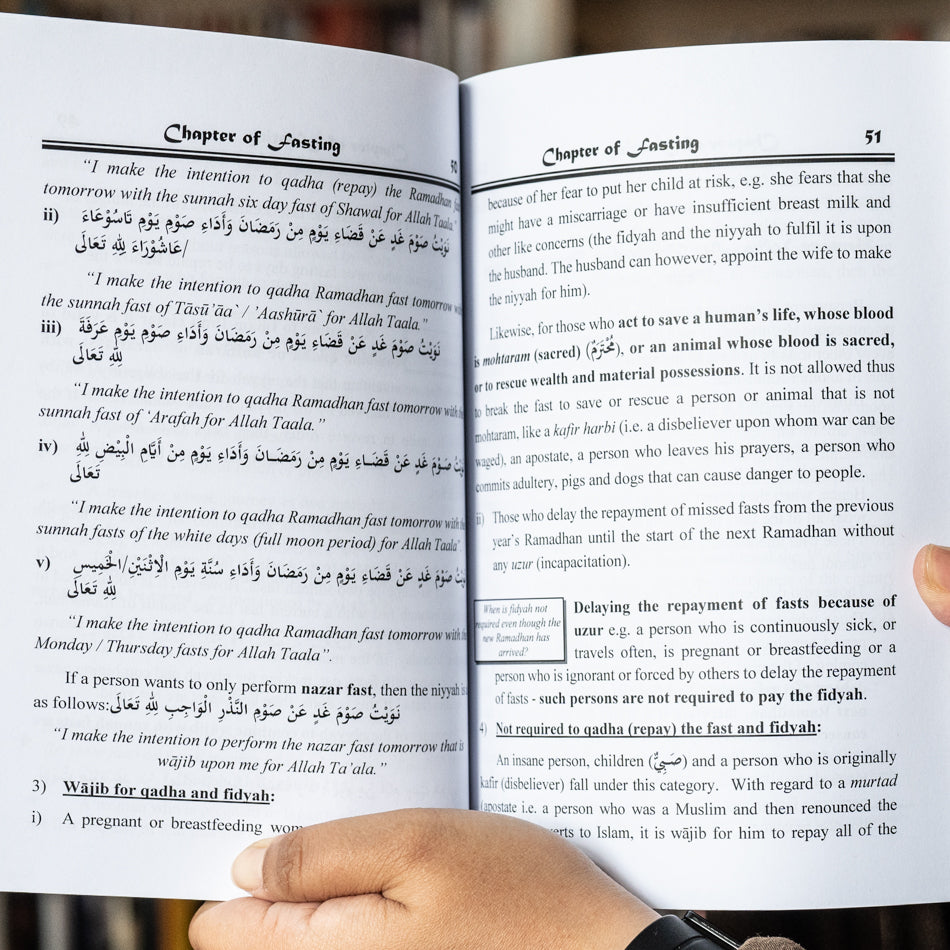 Chapter of Fasting
50
“I make the intention to qadha (repay) the Ramadhan
tomorrow with the sunnah six day fast of Shawal for Allah Taala.”
ii) نَوَيْتُ صَوْمَ غَدٍ عَنْ قَضَاءِ يَوْمٍ مِنْ رَمَضَانَ وَأَدَاءِ صَوْمِ يَوْمِ تَاسُوْعَاءَ
/عَاشُوْرَاءَ لِلّٰهِ تَعَالَى
“I make the intention to qadha Ramadhan fast tomorrow with
the sunnah fast of Tāsū’āa` / ’Aashūrā` for Allah Taala.”
iii) نَوَيْتُ صَوْمَ غَدٍ عَنْ قَضَاءِ يَوْمٍ مِنْ رَمَضَانَ وَأَدَاءِ صَوْمِ يَوْمِ عَرَفَةَ
لِلّٰهِ تَعَالَى
“I make the intention to qadha Ramadhan fast tomorrow with the
sunnah fast of ‘Arafah for Allah Taala.”
iv) صَوْمَ غَدٍ عَنْ قَضَاءِ يَوْمٍ مِنْ رَمَضَانَ وَأَدَاءِ يَوْمٍ مِنْ أَيَّامِ الْبِيْضِ لِلّٰهِ
تَعَالَى
“I make the intention to qadha Ramadhan fast tomorrow with the
sunnah fasts of the white days (full moon period) for Allah Taala”.
v) صَوْمَ غَدٍ عَنْ قَضَاءِ يَوْمٍ مِنْ رَمَضَانَ وَأَدَاءِ سُنَّةِ يَوْمِ الْاِثْنَيْنِ/الْخَمِيسِ
لِلّٰهِ تَعَالَى
“I make the intention to qadha Ramadhan fast tomorrow with the
Monday / Thursday fasts for Allah Taala”.
If a person wants to only perform nazar fast, then the niyyah is
as follows: نَوَيْتُ صَوْمَ غَدٍ عَنْ صَوْمِ النَّذْرِ الْوَاجِبِ لِلّٰهِ تَعَالَى
“I make the intention to perform the nazar fast tomorrow that is
wājib upon me for Allah Ta’ala.”
3) Wājib for qadha and fidyah:
i) A pregnant or breastfeeding
Chapter of Fasting
51
because of her fear to put her child at risk, e.g. she fears that she
might have a miscarriage or have insufficient breast milk and
other like concerns (the fidyah and the niyyah to fulfil it is upon
the husband. The husband can however, appoint the wife to make
the niyyah for him).
Likewise, for those who act to save a human’s life, whose blood
is mohtaram (sacred) (مُحْتَرَمٌ), or an animal whose blood is sacred,
or to rescue wealth and material possessions. It is not allowed thus
to break the fast to save or rescue a person or animal that is not
mohtaram, like a kafir harbi (i.e. a disbeliever upon whom war can be
waged), an apostate, a person who leaves his prayers, a person who
commits adultery, pigs and dogs that can cause danger to people.
ii) Those who delay the repayment of missed fasts from the previous
year’s Ramadhan until the start of the next Ramadhan without
any uzur (incapacitation).
When is fidyah not
required even though the
new Ramadhan has
arrived?
Delaying the repayment of fasts because of
uzur e.g. a person who is continuously sick, or
travels often, is pregnant or breastfeeding or a
person who is ignorant or forced by others to delay the repayment
of fasts - such persons are not required to pay the fidyah.
4) Not required to qadha (repay) the fast and fidyah:
An insane person, children (صَبِيٌّ) and a person who is originally
kafir (disbeliever) fall under this category. With regard to a murtad
(apostate i.e. a person who was a Muslim and then renounced the
to Islam, it is wājib for him to repay all of the